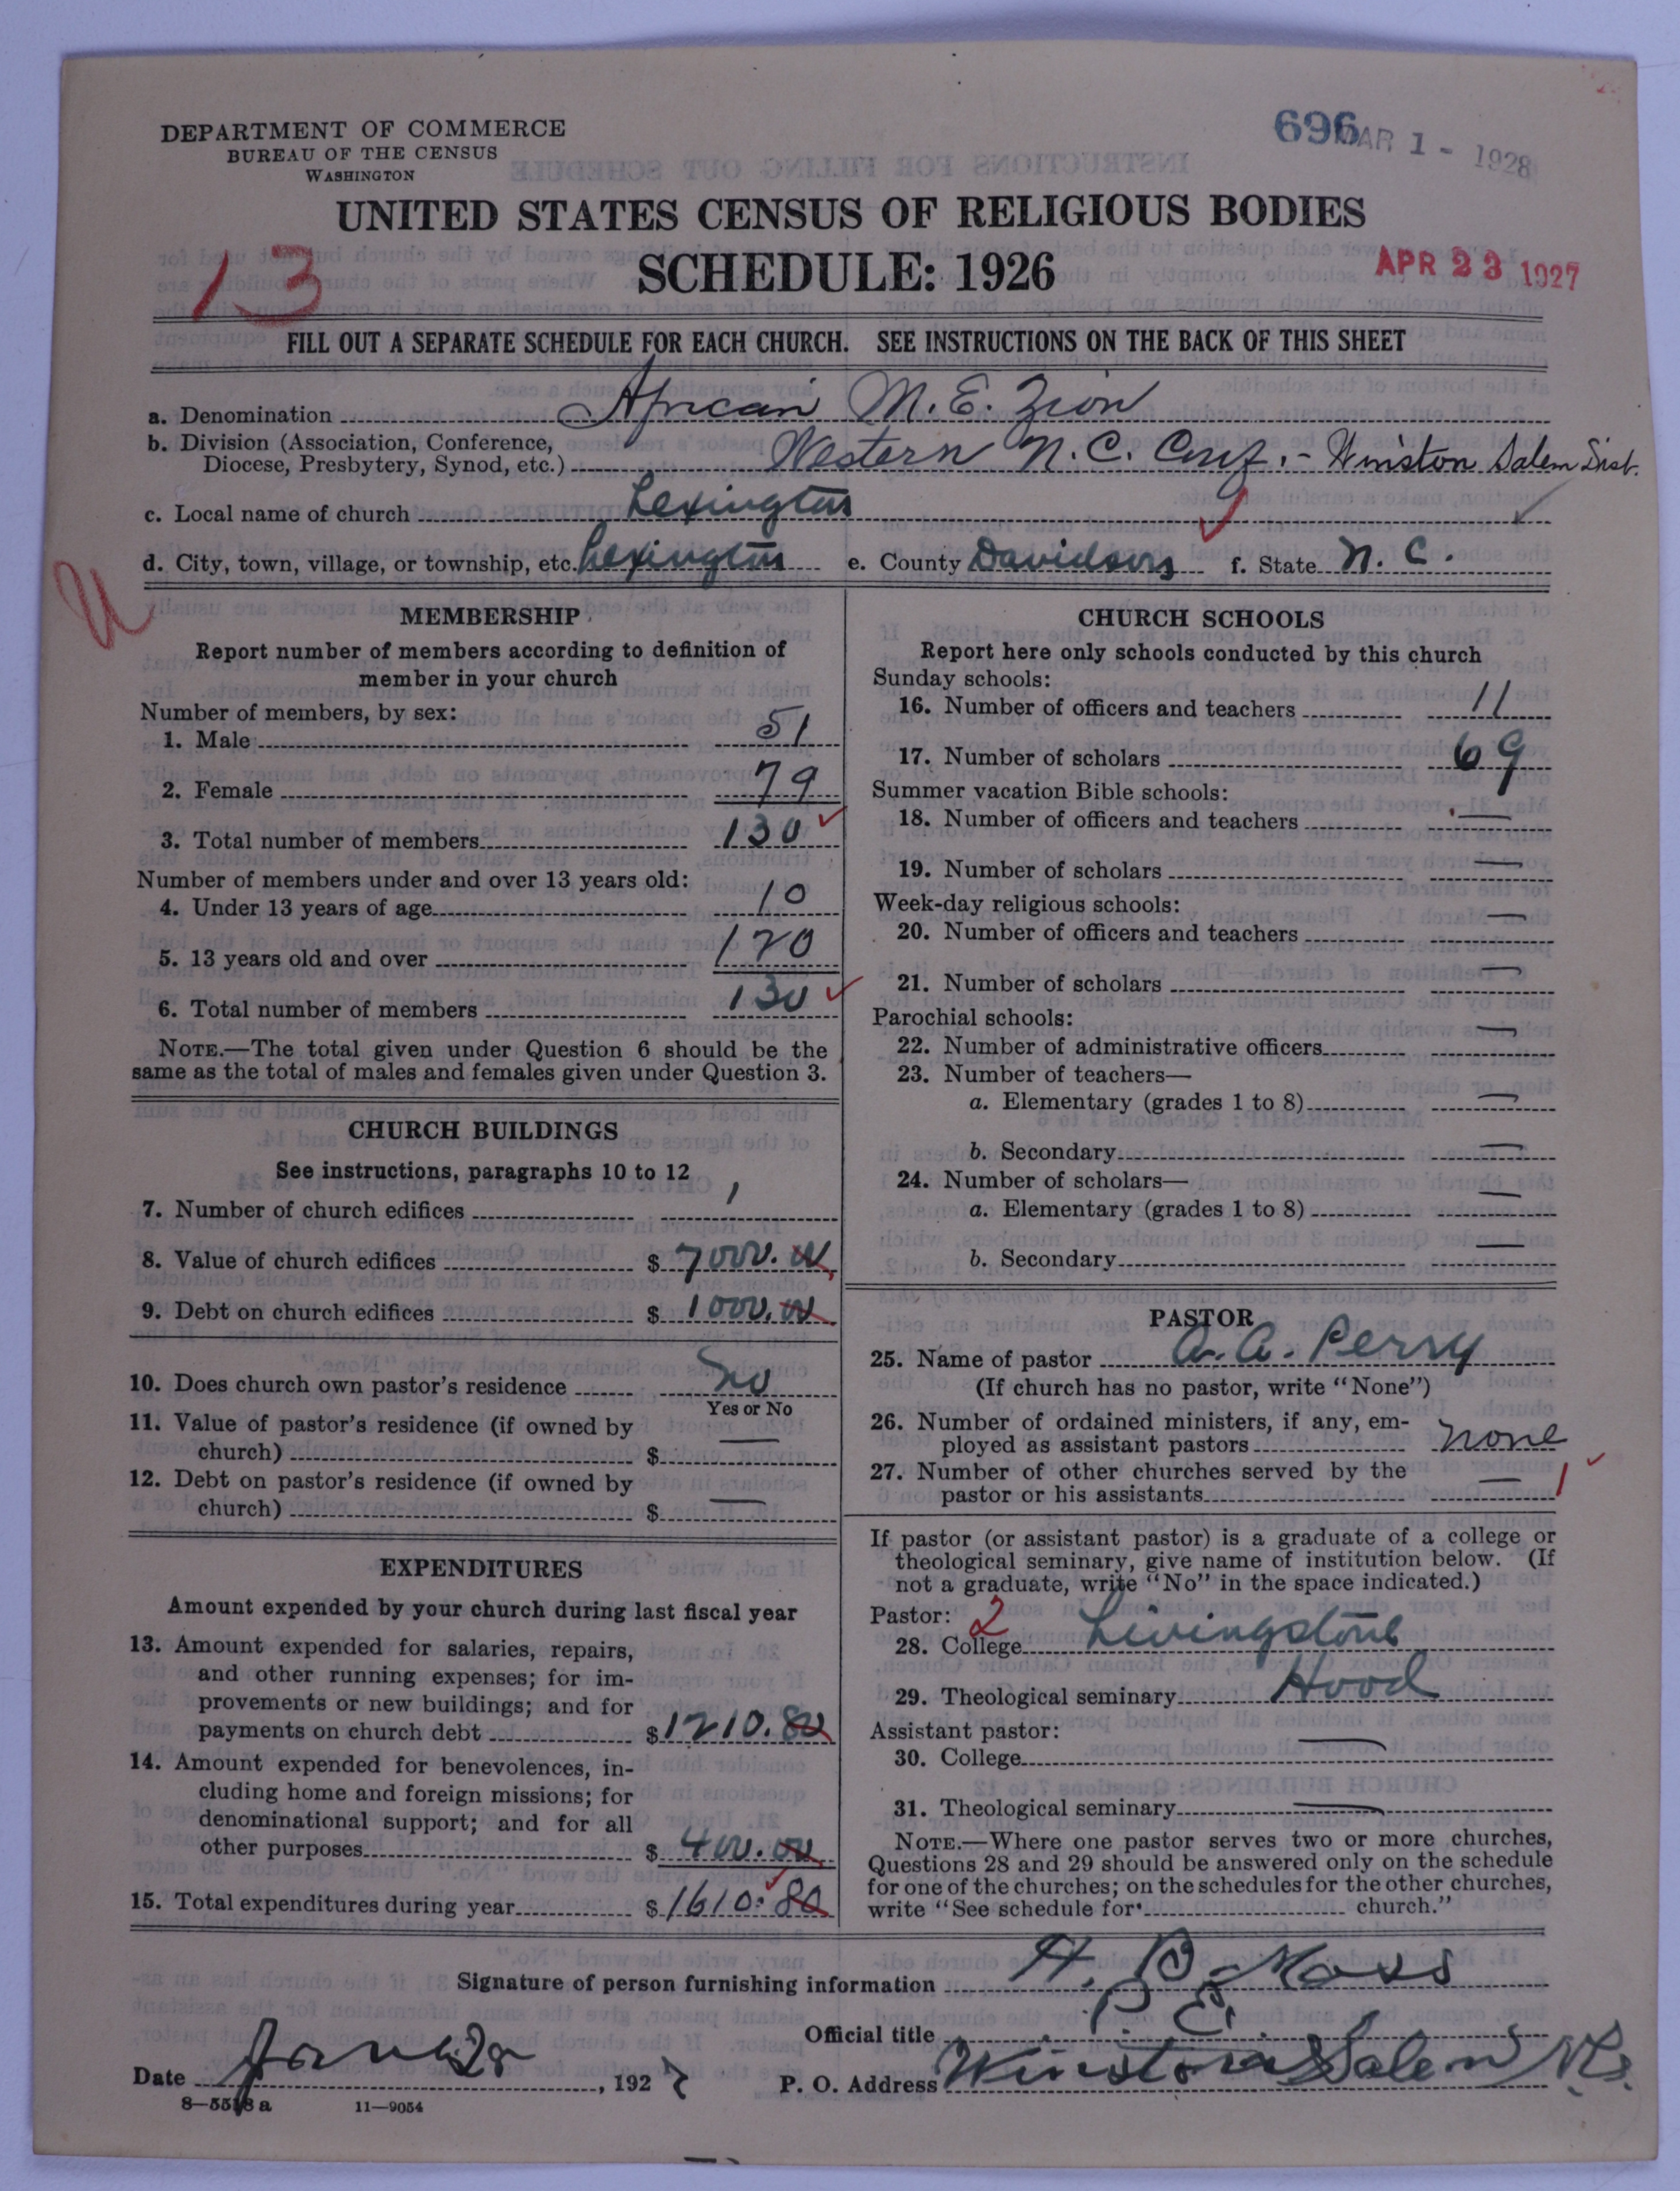 DEPARTMENT OF COMMERCE
BUREAU OF THE CENSUS
WASHINGTON
696
MAR 1 - 1928
UNITED STATES CENSUS OF RELIGIOUS BODIES
13
SCHEDULE: 1926
APR 23 1927
FILL OUT A SEPARATE SCHEDULE FOR EACH CHURCH. SEE INSTRUCTIONS ON THE BACK OF THIS SHEET
a. Denomination African M.E. Zion
b. Division (Association, Conference,
Diocese, Presbytery, Synod, etc.) Western N.C. Conf. - Winston Salem Dist.
c. Local name of church Lexington
d. City, town, village, or township, etc. Lexington e. County Davidson f. State N.C.
U
MEMBERSHIP
Report number of members according to definition of
member in your church
Number of members, by sex:
1. Male 51
2. Female 79
3. Total number of members 130
Number of members under and over 13 years old:
4. Under 13 years of age 10
5. 13 years old and over 120
6. Total number of members 130
NOTE.—The total given under Question 6 should be the
same as the total of males and females given under Question 3.
CHURCH BUILDINGS
See instructions, paragraphs 10 to 12
7. Number of church edifices 1
8. Value of church edifices $ 7000.00
9. Debt on church edifices $ 1000.00
10. Does church own pastor's residence No
Yes or No
11. Value of pastor's residence (if owned by
church) $ —
12. Debt on pastor's residence (if owned by
church) $ —
EXPENDITURES
Amount expended by your church during last fiscal year
13. Amount expended for salaries, repairs,
and other running expenses; for im-
provements or new buildings; and for
payments on church debt $ 1210.80
14. Amount expended for benevolences, in-
cluding home and foreign missions; for
denominational support; and for all
other purposes $ 400.00
15. Total expenditures during year $ 1610.80
CHURCH SCHOOLS
Report here only schools conducted by this church
Sunday schools:
16. Number of officers and teachers 11
17. Number of scholars 69
Summer vacation Bible schools:
18. Number of officers and teachers —
19. Number of scholars —
Week-day religious schools:
20. Number of officers and teachers —
21. Number of scholars —
Parochial schools:
22. Number of administrative officers —
23. Number of teachers—
a. Elementary (grades 1 to 8) —
b. Secondary —
24. Number of scholars—
a. Elementary (grades 1 to 8) —
b. Secondary —
PASTOR
25. Name of pastor A. A. Perry
(If church has no pastor, write "None")
26. Number of ordained ministers, if any, em-
ployed as assistant pastors None
27. Number of other churches served by the
pastor or his assistants — 1
If pastor (or assistant pastor) is a graduate of a college or
theological seminary, give name of institution below. (If
not a graduate, write "No" in the space indicated.)
Pastor: 2
28. College Livingstone
29. Theological seminary Hood
Assistant pastor:
30. College —
31. Theological seminary —
NOTE.—Where one pastor serves two or more churches,
Questions 28 and 29 should be answered only on the schedule
for one of the churches; on the schedules for the other churches,
write "See schedule for church."
Signature of person furnishing information H. B. Moss
Official title P. E.
Date Jan 28, 1927 P. O. Address Winston Salem N.C.
8—5518 a 11—9054